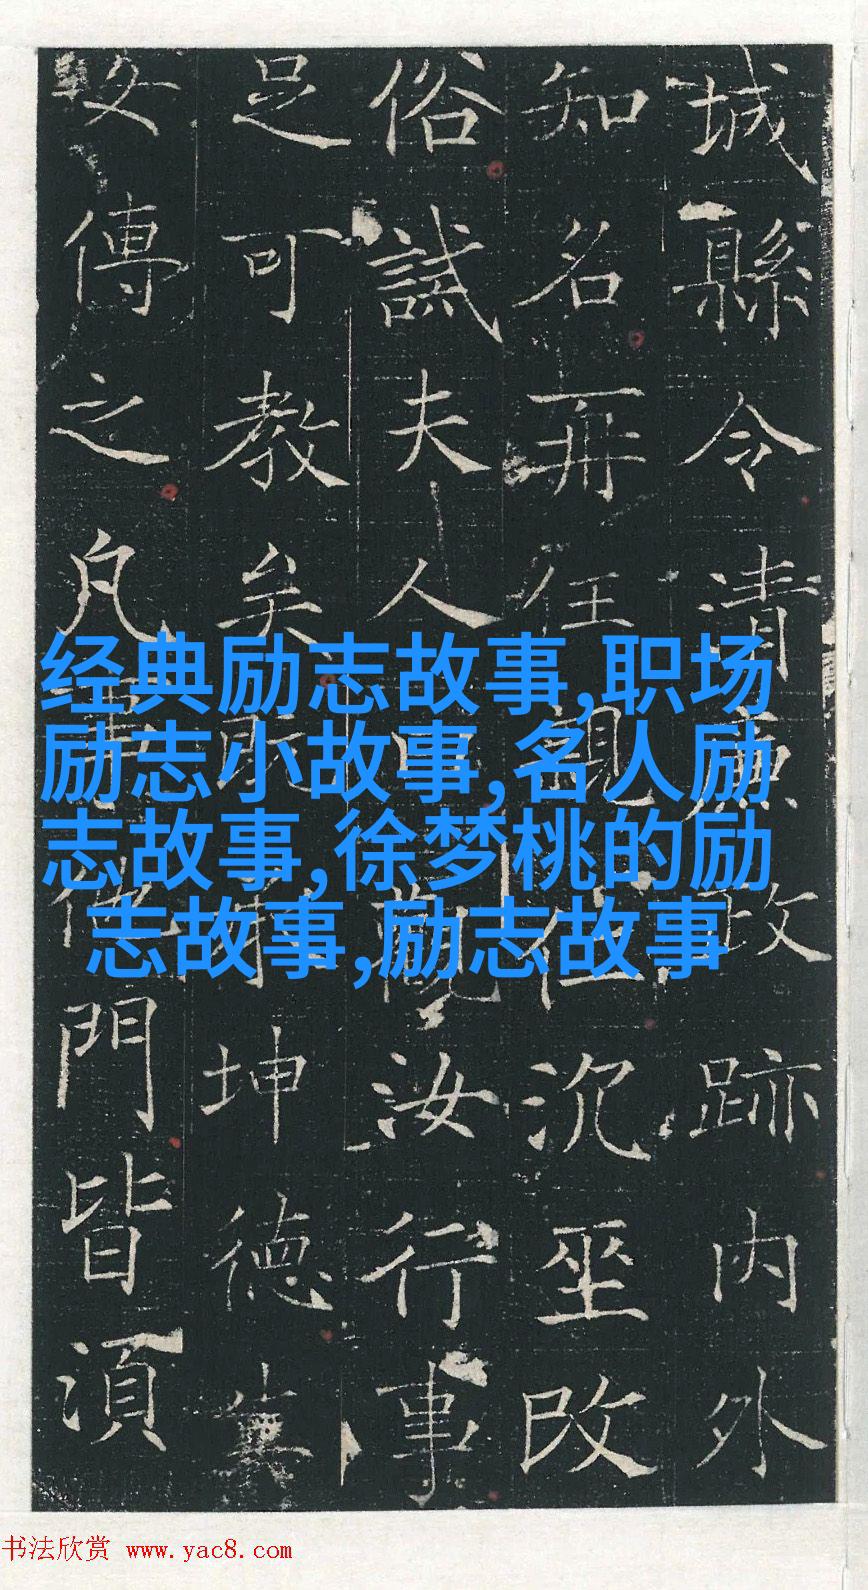 城縣令清廉政跡内外
知名再任沉坐改
俗試夫人曰觀汝行事
足可教矣坤德
女傳之凡事門皆須
经典励志故事,职场
励志小故事,名人励
志故事,徐梦桃的励
志故事,励志故事
书法欣赏 www.yac8.com